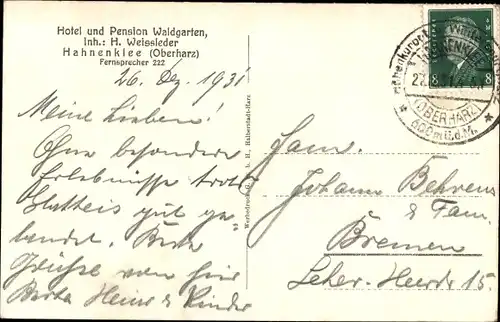 Hotel und Pension Waldgarten,
Inh.: H. Weissleder
Hahnenklee (Oberharz)
Fernsprecher 222
26. Dez. 1931
Meine Lieben!
Ohne besondere
Erlebnisse trotz
Glatteis gut ge-
landet. Beste
Grüsse von hier
Berta Heins & Kinder
Werbedruck G. m. b. H. Halberstadt-Harz
8 8
(OBERHARZ)
600 m ü.d.M.
Fam.
Johann Behrens
& Fam.
Bremen
Leher-Heerstr 15.